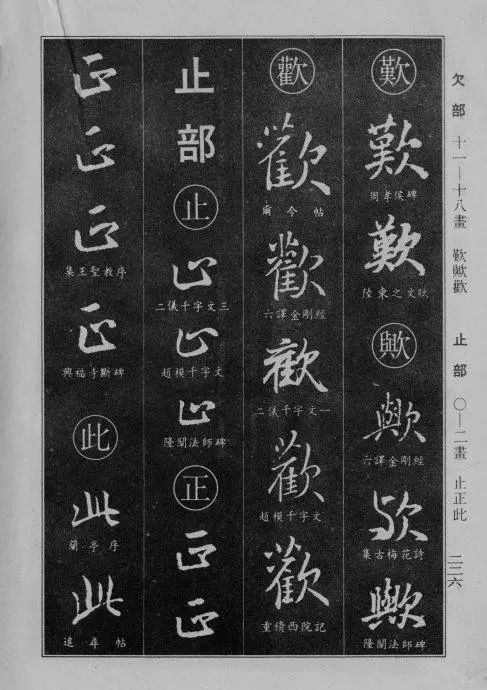 欠部 十一—十八畫 歎歟歡 止部 〇—二畫 止正此 二二六
歎
歎
周孝侯碑
歎
陸柬之文賦
歟
歟
六譯金剛經
歟
集古梅花詩
歟
隆闡法師碑
歡
歡
今帖
歡
六譯金剛經
歡
二儀千字文一
歡
趙模千字文
歡
重脩西院記
止部
止
止
二儀千字文三
止
趙模千字文
止
隆闡法師碑
正
正
正
正
正
正
集王聖教序
正
興福寺斷碑
此
此
蘭亭序
此
追尋帖